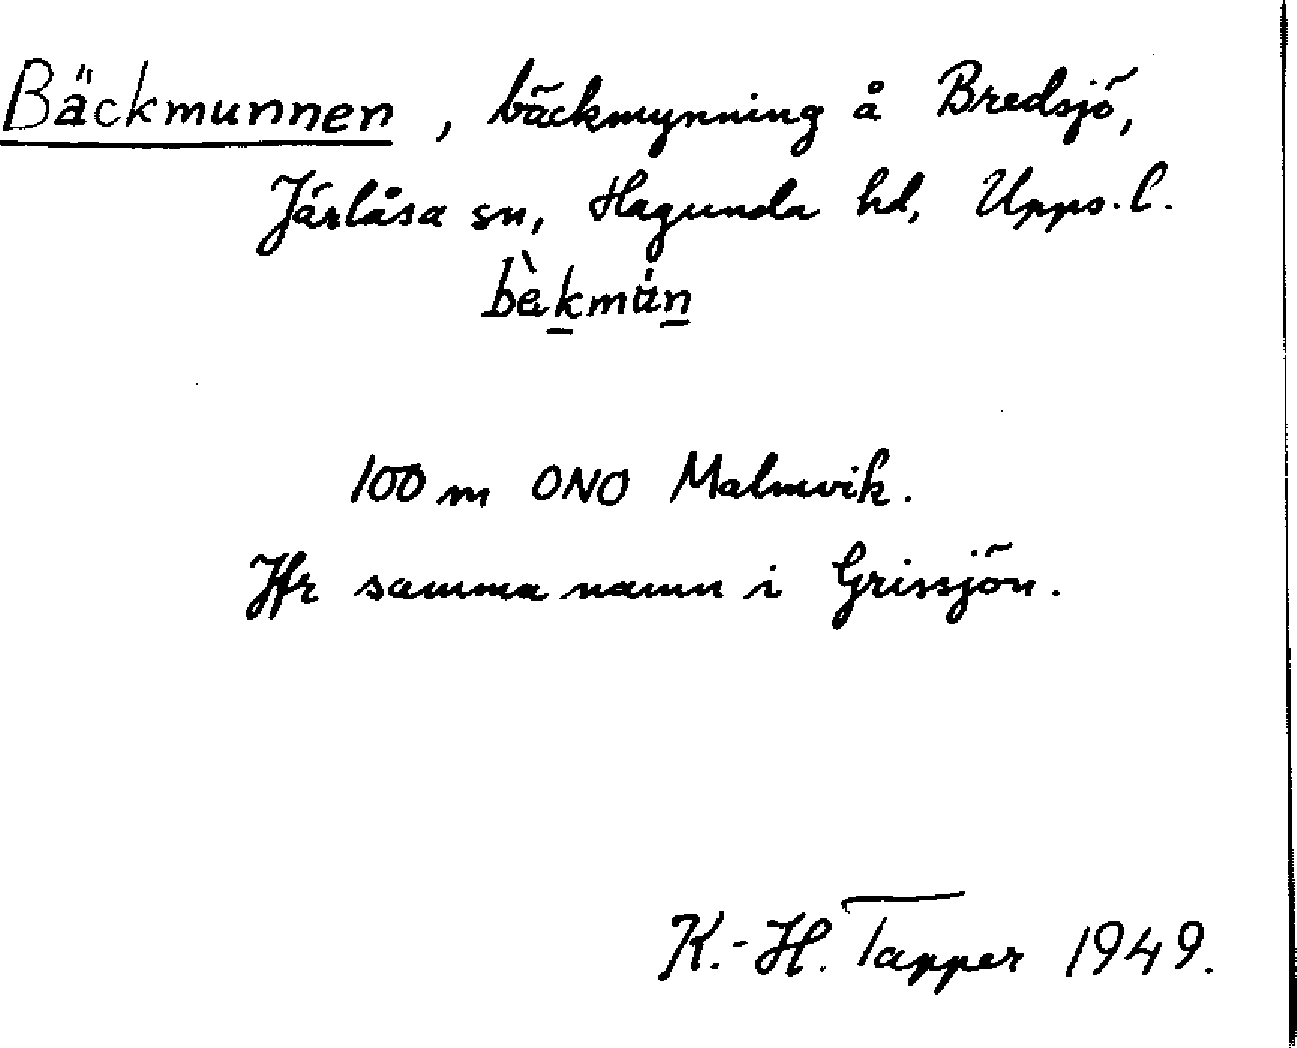 Bäckmunnen, bäckmynning å Bredsjö,
Järlåsa sn, Hagunda hd, Upps. l.
bèkmun
100 m ONO Malmvik.
Jfr samma namn i Grissjön.
K.-H. Tapper 1949.